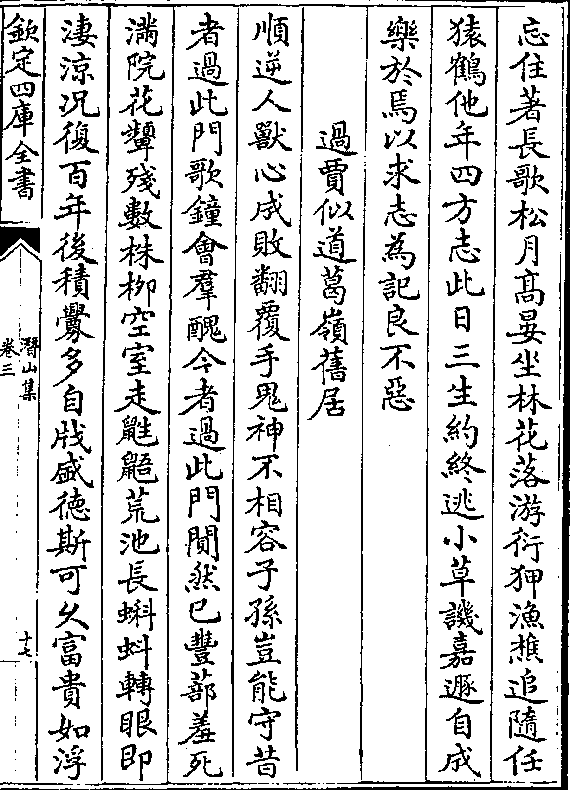 忘住著長歌松月高晏坐林花落游衍狎漁樵追隨任
猿鶴他年四方志此日三生約終逃小草譏嘉遯自成
樂於焉以求志為記良不惡
過賈似道葛嶺舊居
順逆人獸心成敗翻覆手鬼神不相容子孫豈能守昔
者過此門歌鐘會羣醜今者過此門閴然已豐蔀羞死
滿院花顰殘數株栁空室走鼪鼯荒池長蝌蚪轉眼即
淒涼况復百年後積釁多自戕盛德斯可久富貴如浮
欽定四庫全書
潛山集
卷三
十七